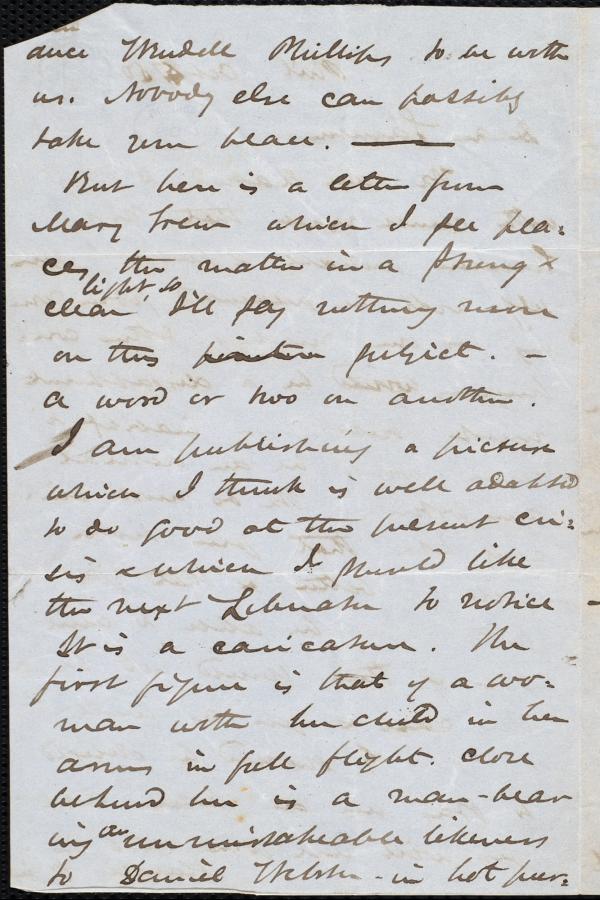 ance Wendell Phillips to be with
us. Nobody else can possibly
take your place. —
But here is a letter from
Mary Grew which I see pla=
ces the matter in a strong &
clear light, so I'll say nothing more
on this subject. –
a word or two on another.
I am publishing a picture
which I think is well adapted
to do good at the present cri=
sis & which I should like
the next Liberator to notice –
It is a caricature. The
first figure is that of a wo=
man with her child in her
arms in full flight. Close
behind her is a man - bear
ing an unmistakeable likeness
to Daniel Webster - in hot pur=